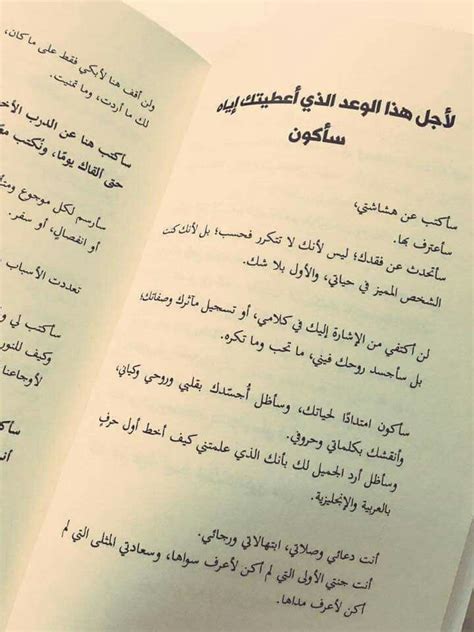 لأجل هذا الوعد الذي أعطيتك إياه
سأكون
سأكتب عن هشاشتي،
سأعترف بها.
سأتحدث عن فقدك؛ ليس لأنك لا تتكرر فحسب؛ بل لأنك كنت
الشخص المميز في حياتي، والأول بلا شك.
لن أكتفي من الإشارة إليك في كلامي، أو تسجيل مآثرك وصفاتك؛
بل سأجسد روحك فيني، ما تحب وما تكره.
سأكون امتدادًا لحياتك، وسأظل أُجسّدك بقلبي وروحي وكياني،
وأنقشك بكلماتي وحروفي.
وسأظل أرد الجميل لك بأنك الذي علمتني كيف أخط أول حرفٍ
بالعربية والإنجليزية.
أنت دعائي وصلاتي، ابتهالاتي ورجائي.
أنت جنتي الأولى التي لم أكن لأعرف سواها، وسعادتي المثلى التي لم
أكن لأعرف مداها.
ولن أقف هنا لأبكي فقط على ما كان،
لك ما أردت، وما تمنيت.
سأكتب هنا عن الدرب
حتى ألقاك يومًا، ونُكتب
سأرسم لكل موجوع
أو انفصالٍ، أو سفر.
تعددت الأسباب
سأكتب لي
وكيف للنور
لأوجاعنا
أنت